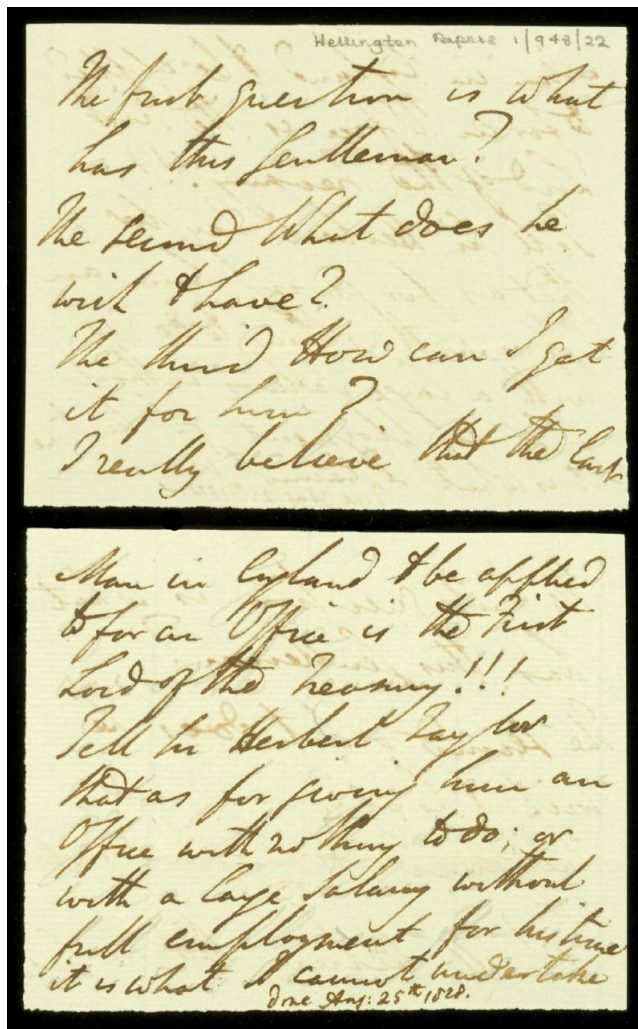 Wellington Papers 1/948/22
The first question is what
has this Gentleman?
The second What does he
wish to have?
The third How can I get
it for him?
I really believe that the last
Man in England to be applied
to for an Office is the First
Lord of the Treasury!!!
Tell Sir Herbert Taylor
that as for giving him an
Office with nothing to do; or
with a large Salary without
full employment for his time
it is what I cannot undertake
Done Aug: 25th 1828.